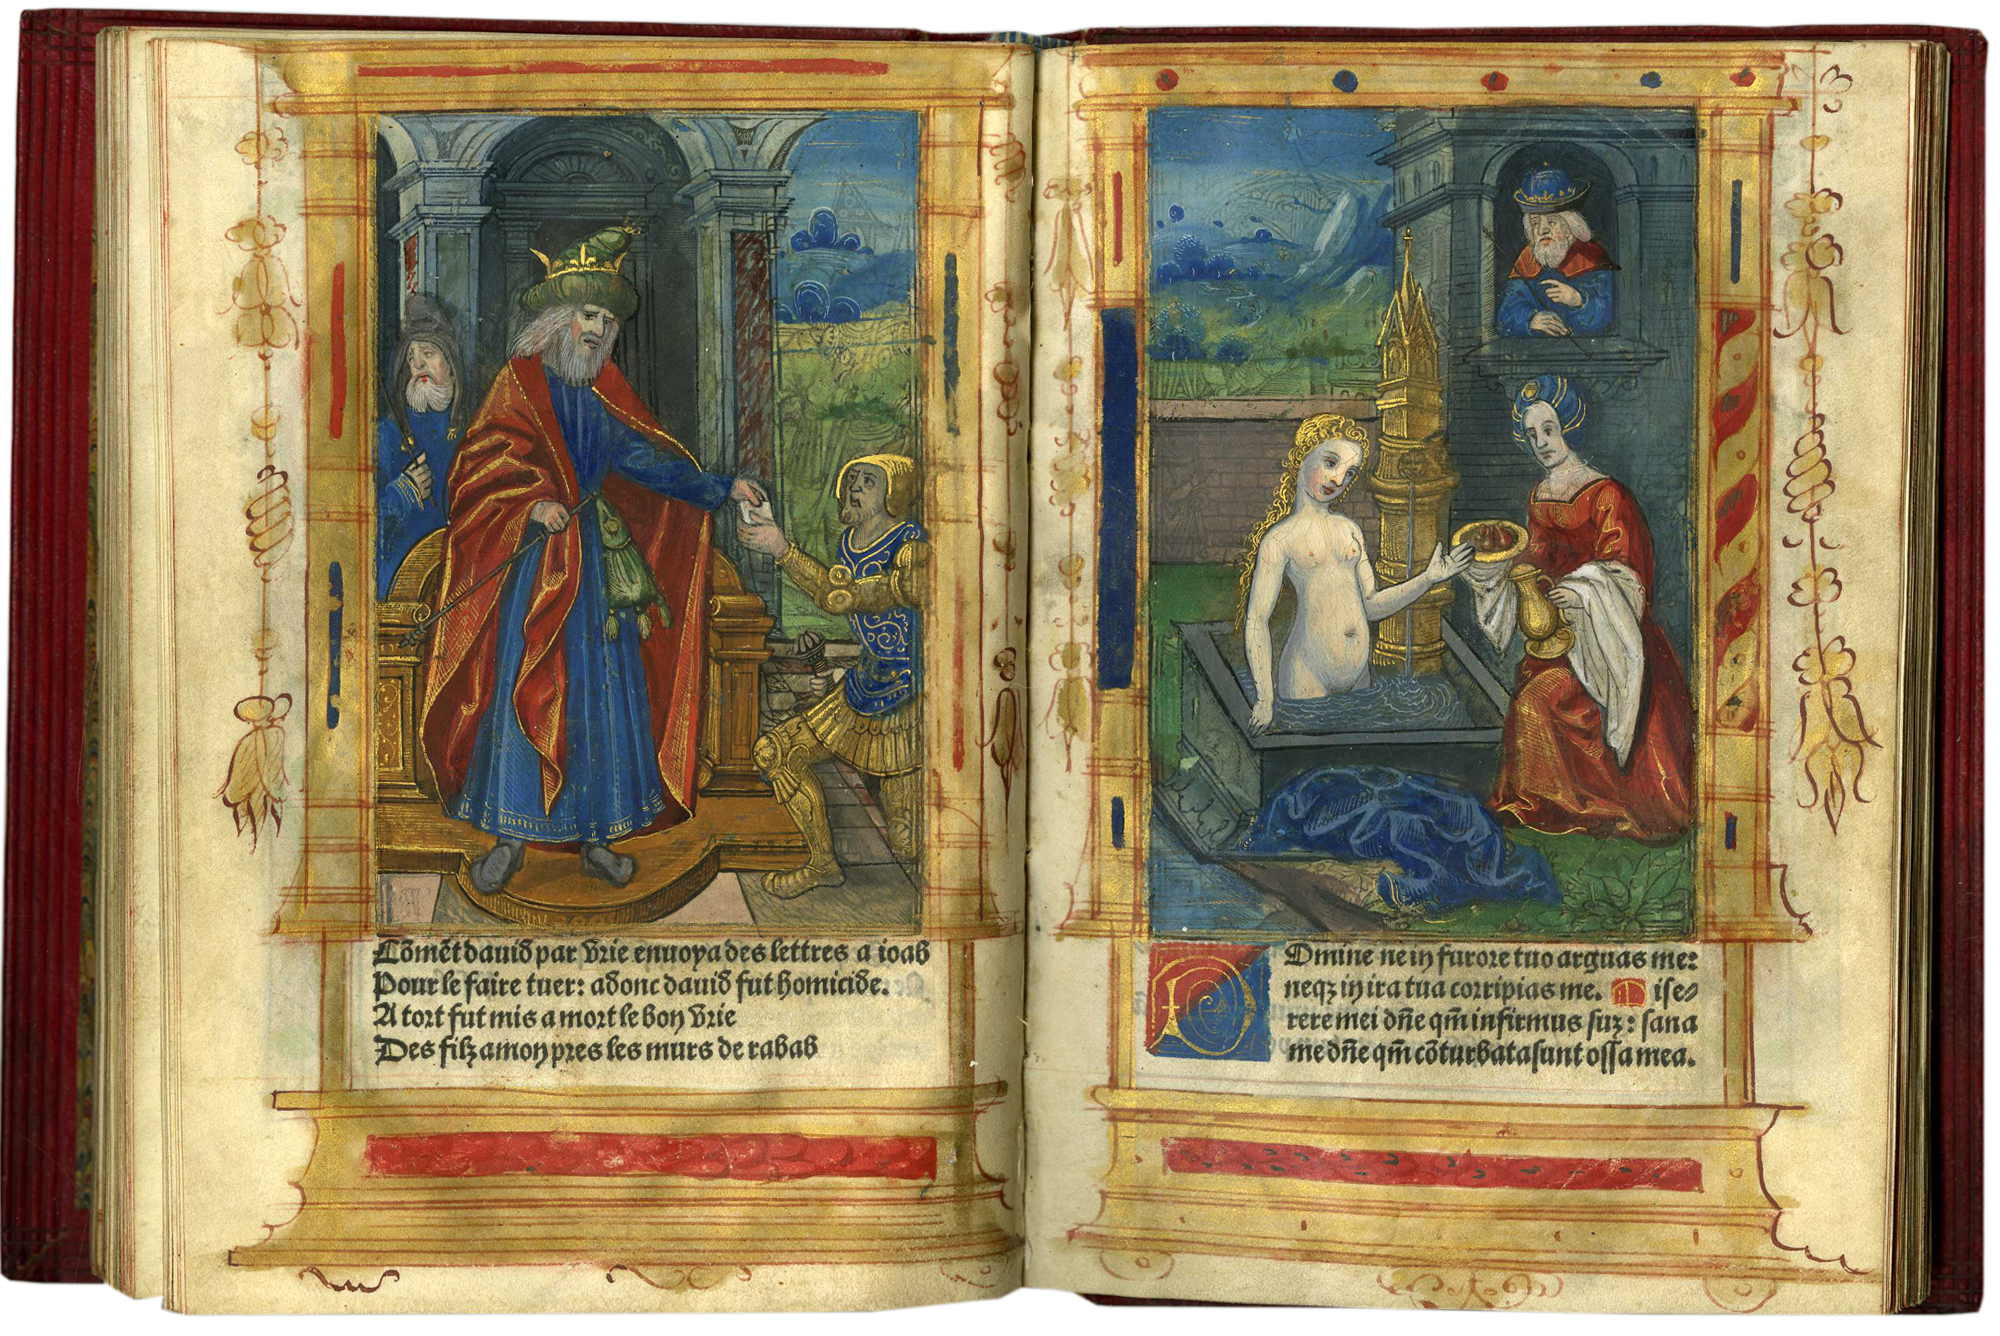 Cōmēt dauid par Vrie enuoya des lettres a ioab
Pour le faire tuer: adonc dauid fut homicide.
A tort fut mis a mort le bon Vrie
Des filz amon pres les murs de rabab
Domine ne in furore tuo arguas me:
neqꝫ in ira tua corripias me. Mise⸗
rere mei dn̄e qm̄ infirmus suꝫ: sana
me dn̄e qm̄ cōturbata sunt ossa mea.